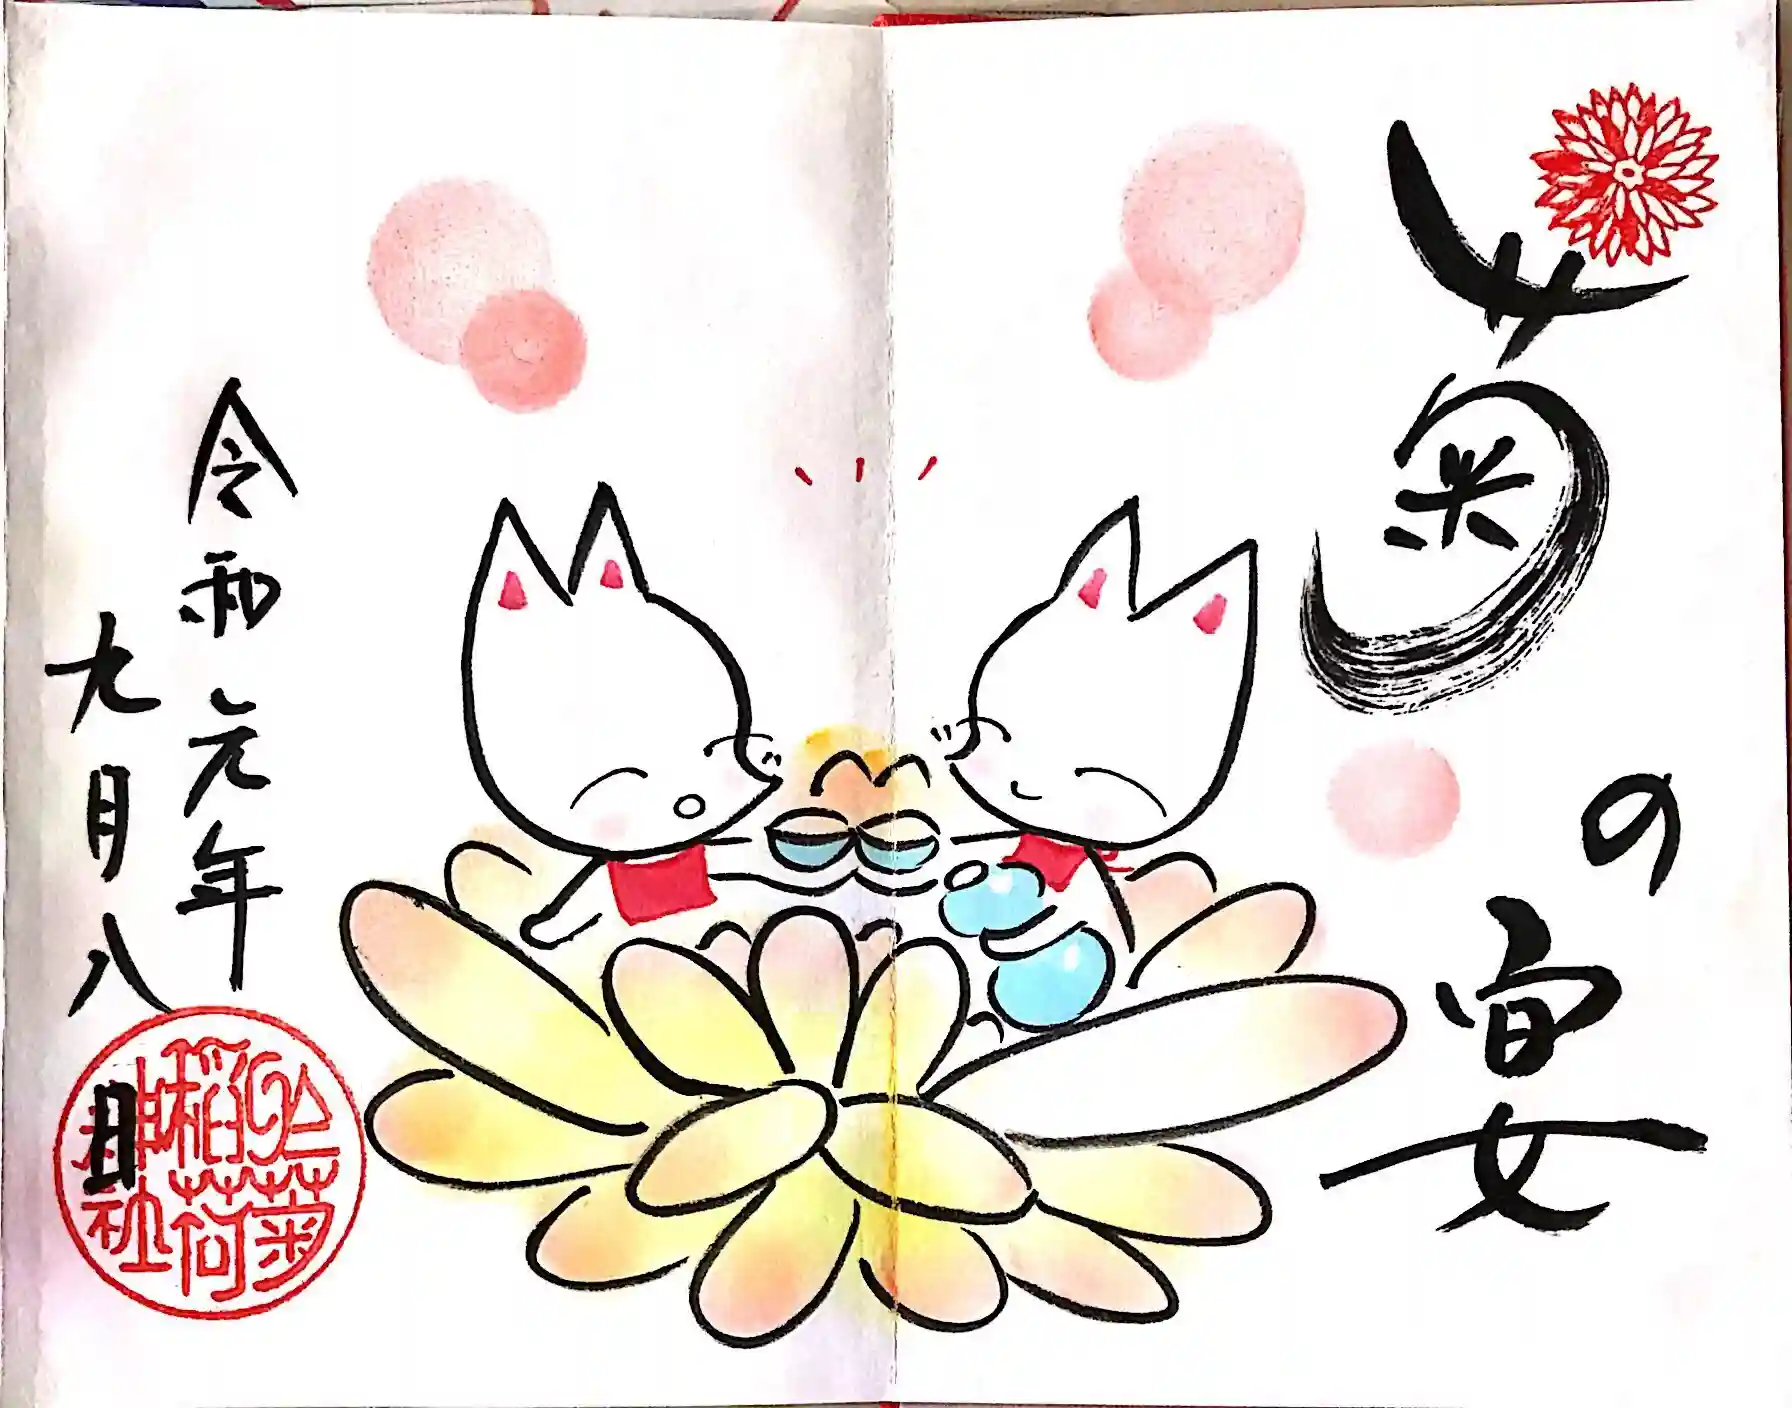 菊の宴
令和元年
九月八日
於菊
稲荷
神社